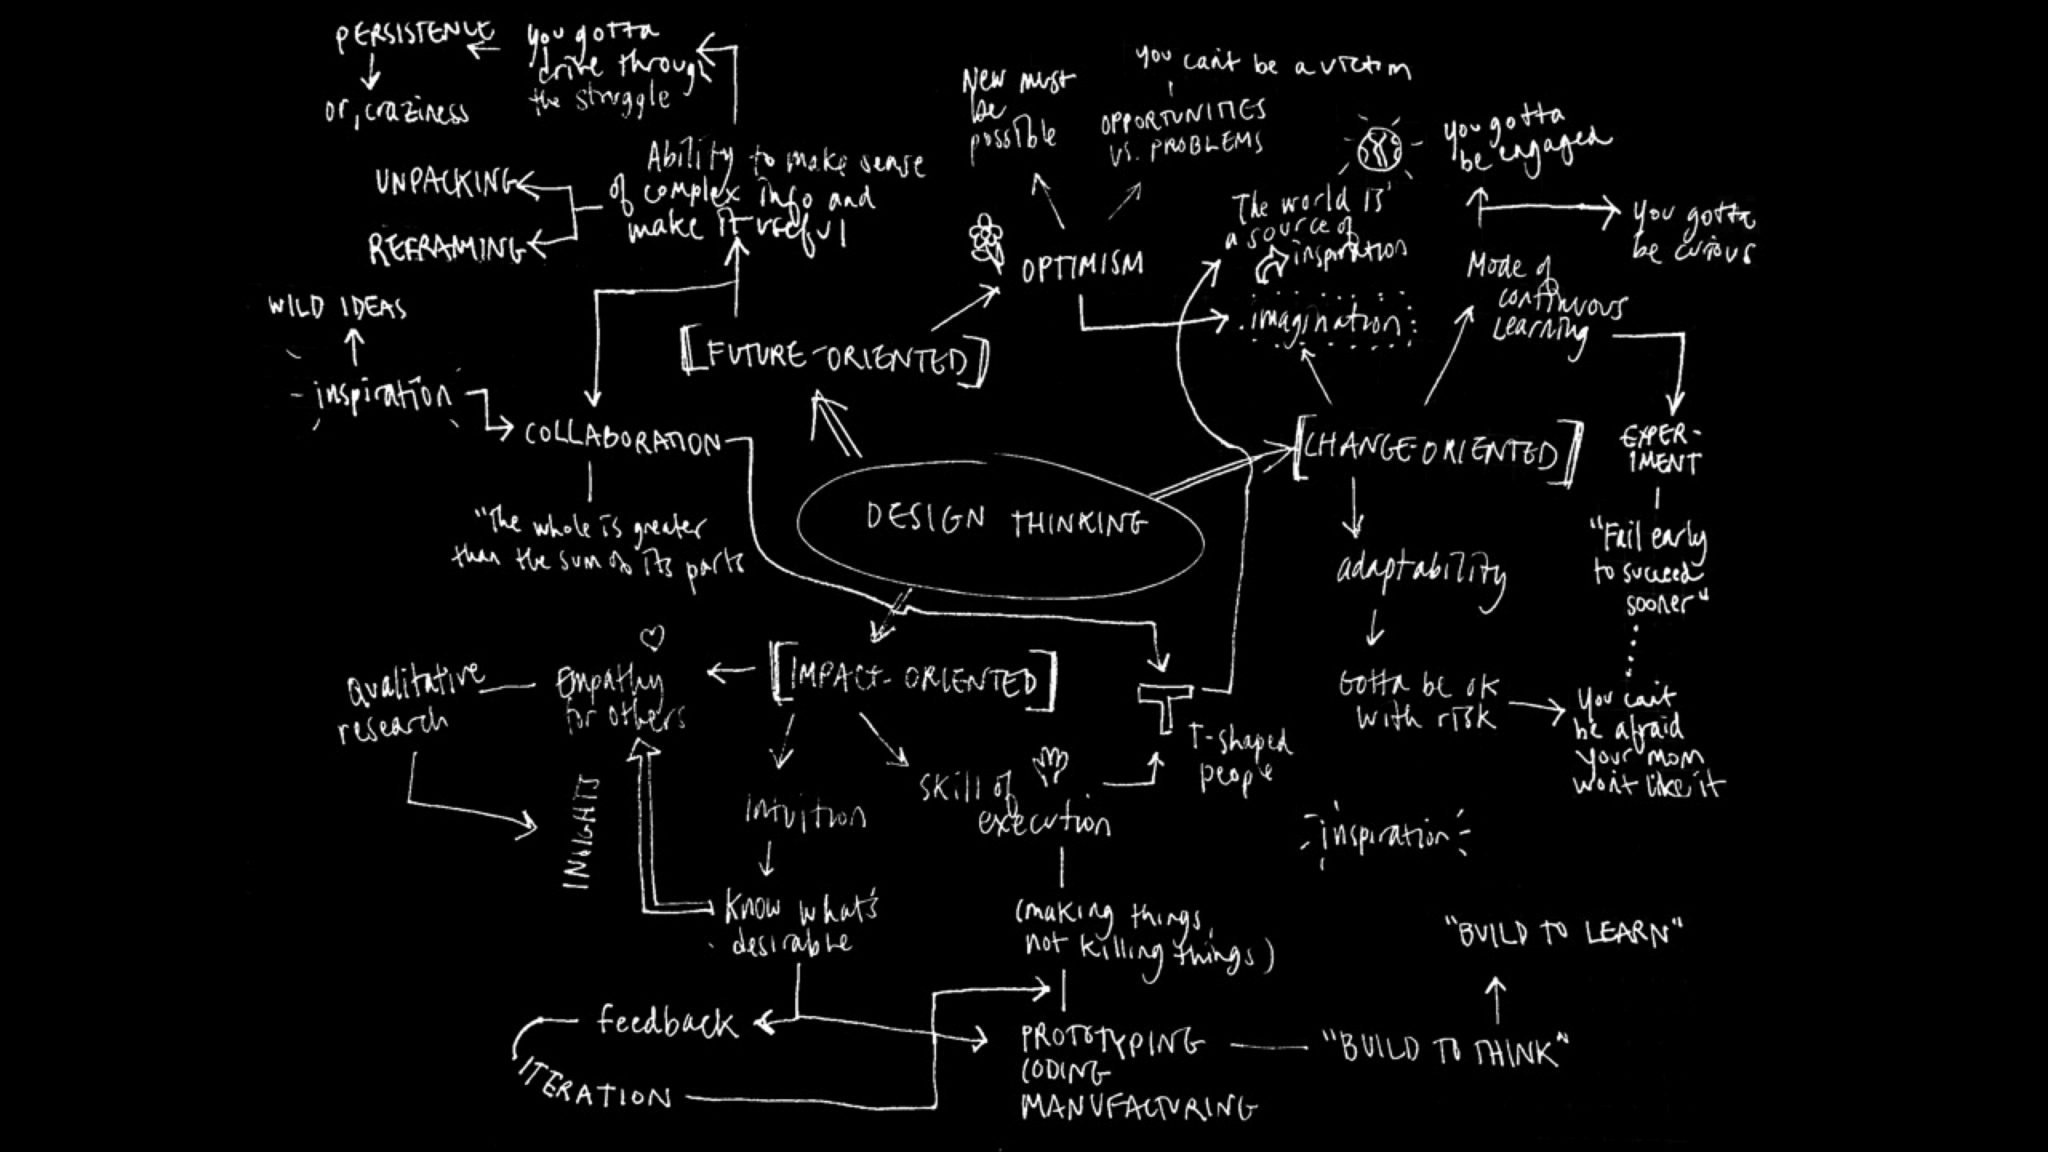 PERSISTENCE
or, craziness
you gotta
drive through
the struggle
Ability to make sense
of complex info and
make it useful
UNPACKING
REFRAMING
New must
be
possible
you can't be a victim
OPPORTUNITIES
VS. PROBLEMS
OPTIMISM
The world is
a source of
inspiration
imagination
you gotta
be engaged
you gotta
be curious
Mode of
continuous
Learning
WILD IDEAS
inspiration
COLLABORATION
"The whole is greater
than the sum of its parts
[FUTURE-ORIENTED]
DESIGN THINKING
[CHANGE-ORIENTED]
EXPER-
IMENT
"Fail early
to succeed
sooner"
adaptability
Gotta be ok
with risk
You can't
be afraid
your mom
won't like it
[IMPACT-ORIENTED]
Empathy
for others
qualitative
research
INSIGHTS
Intuition
Know what's
desirable
Skill of
execution
T-shaped
people
inspiration
(making things,
not killing things)
feedback
ITERATION
PROTOTYPING
CODING
MANUFACTURING
"BUILD TO THINK"
"BUILD TO LEARN"